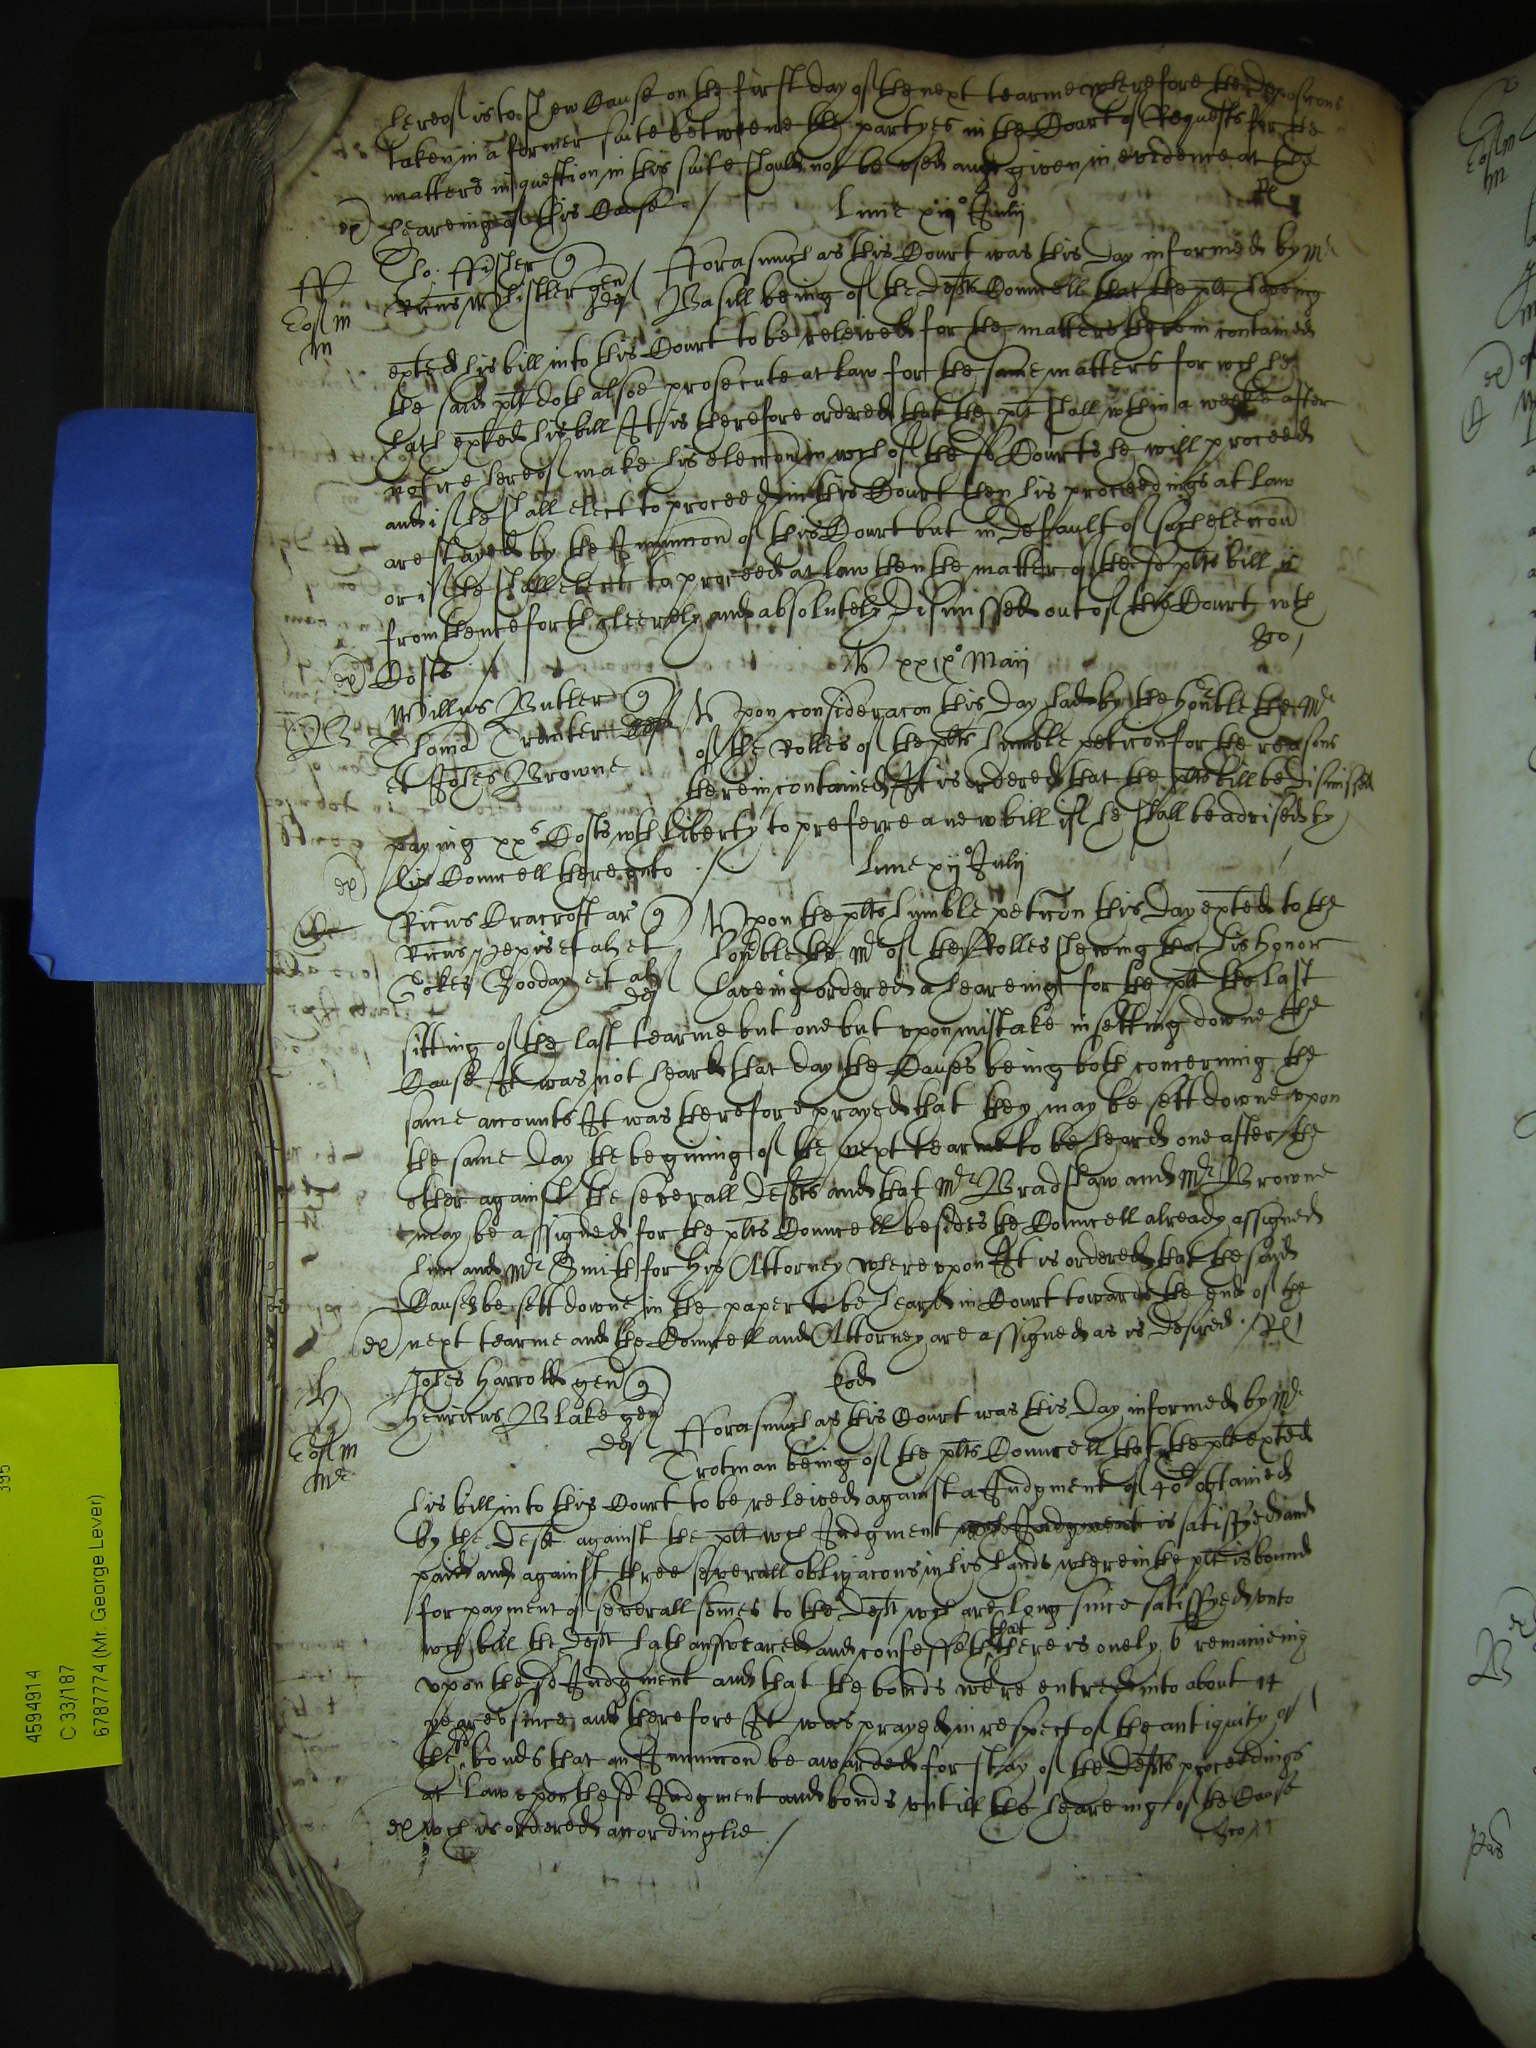 hereof is to shew Cause on the first day of the next tearme wherefore the deposicons
taken in a former suite betweene the partyes in the Court of Requests for the
matters in question in this suite should not be used and given in evidence at the
ex hearinge of this Cause /
Rl
Lune xiij° Julij
ff
Tho: ffisher q
Ricus Whistler gen def
fforasmuch as this Court was this day informed by Mr
Basill being of the defts Councell that the plt haveing
exted his bill into this Court to be releived for the matters therein contained
the said plt doth alsoe prosecute at law for the same matters for wch he
hath exted his bill It is therefore ordered that the plt shall wthin a weeke after
notice hereof make his eleccon in wch of these Courts he will proceed
and if he shall elect to proceed in this Court then his proceedings at law
are stayed by the Iniunccon of this Court but in default of such eleccon
or if he shall elect to proceed at law then the matter of the sd plts bill is
from thenceforth cleerely and absolutely dismissed out of this Court wth
ex Costs /
V xxix° Maij
B
Willus Butler q
Thoma Trencker def
et Johes Browne
Upon consideracon this day had by the honble the Mr
of the Rolles of the plts humble peticon for the reasons
therein contained It is ordered that the plts bill be dismissed
paying xxs Costs wth liberty to preferre a new bill if he shall be advised by
ex his Councell thereunto /
Lune xij° Julij
Ricus Cracroft ar q
Ricus et als et
Gooday et als def
Upon the plts humble peticon this day exted to the
honble the Mr of the Rolles shewing that his honor
haveing ordered a heareing for the plt the last
sitting of the last tearme but one but upon mistake in setting downe the
Cause It was not heard that day the Causes being both concerning the
same accounts It was therefore prayed that they may be sett downe upon
the same day the begining of the next tearme to be heard one after the
other against the severall defts and that Mr Bradshaw and Mr Browne
may be assigned for the plts Councell besides the Councell already assigned
him and Mr Smith for his Attorney whereupon It is ordered that the said
Causes be sett downe in the paper to be heard in Court towards the end of the
ex next tearme and the Councell and Attorney are assigned as is desired / Rl
h
Johes Harrold gen q
Henricus Blake gen def
Eod
fforasmuch as this Court was this day informed by Mr
Trotman being of the plts Councell that the plt exted
his bill into this Court to be releived against a Judgment of 40 obtained
by the deft against the plt wch Judgment is satisfyed and
paid and against three severall obligacons in his hands wherein the plt is bound
for payment of severall somes to the deft wch are long since satisfyed unto
wch bill the deft hath answeared and confesseth that there is onely 6 remaineing
upon the sd Judgment and that the bonds were entred into about 14
yeares since and therefore It was prayed in respect of the antiquity of
the sd bonds that an Iniunccon be awarded for stay of the defts proceedings
at law upon the sd Judgment and bonds untill the heareing of the Cause
ex wch is ordered accordinglie /
395
4594914
C 33/187
6787774 (Mr. George Lever)